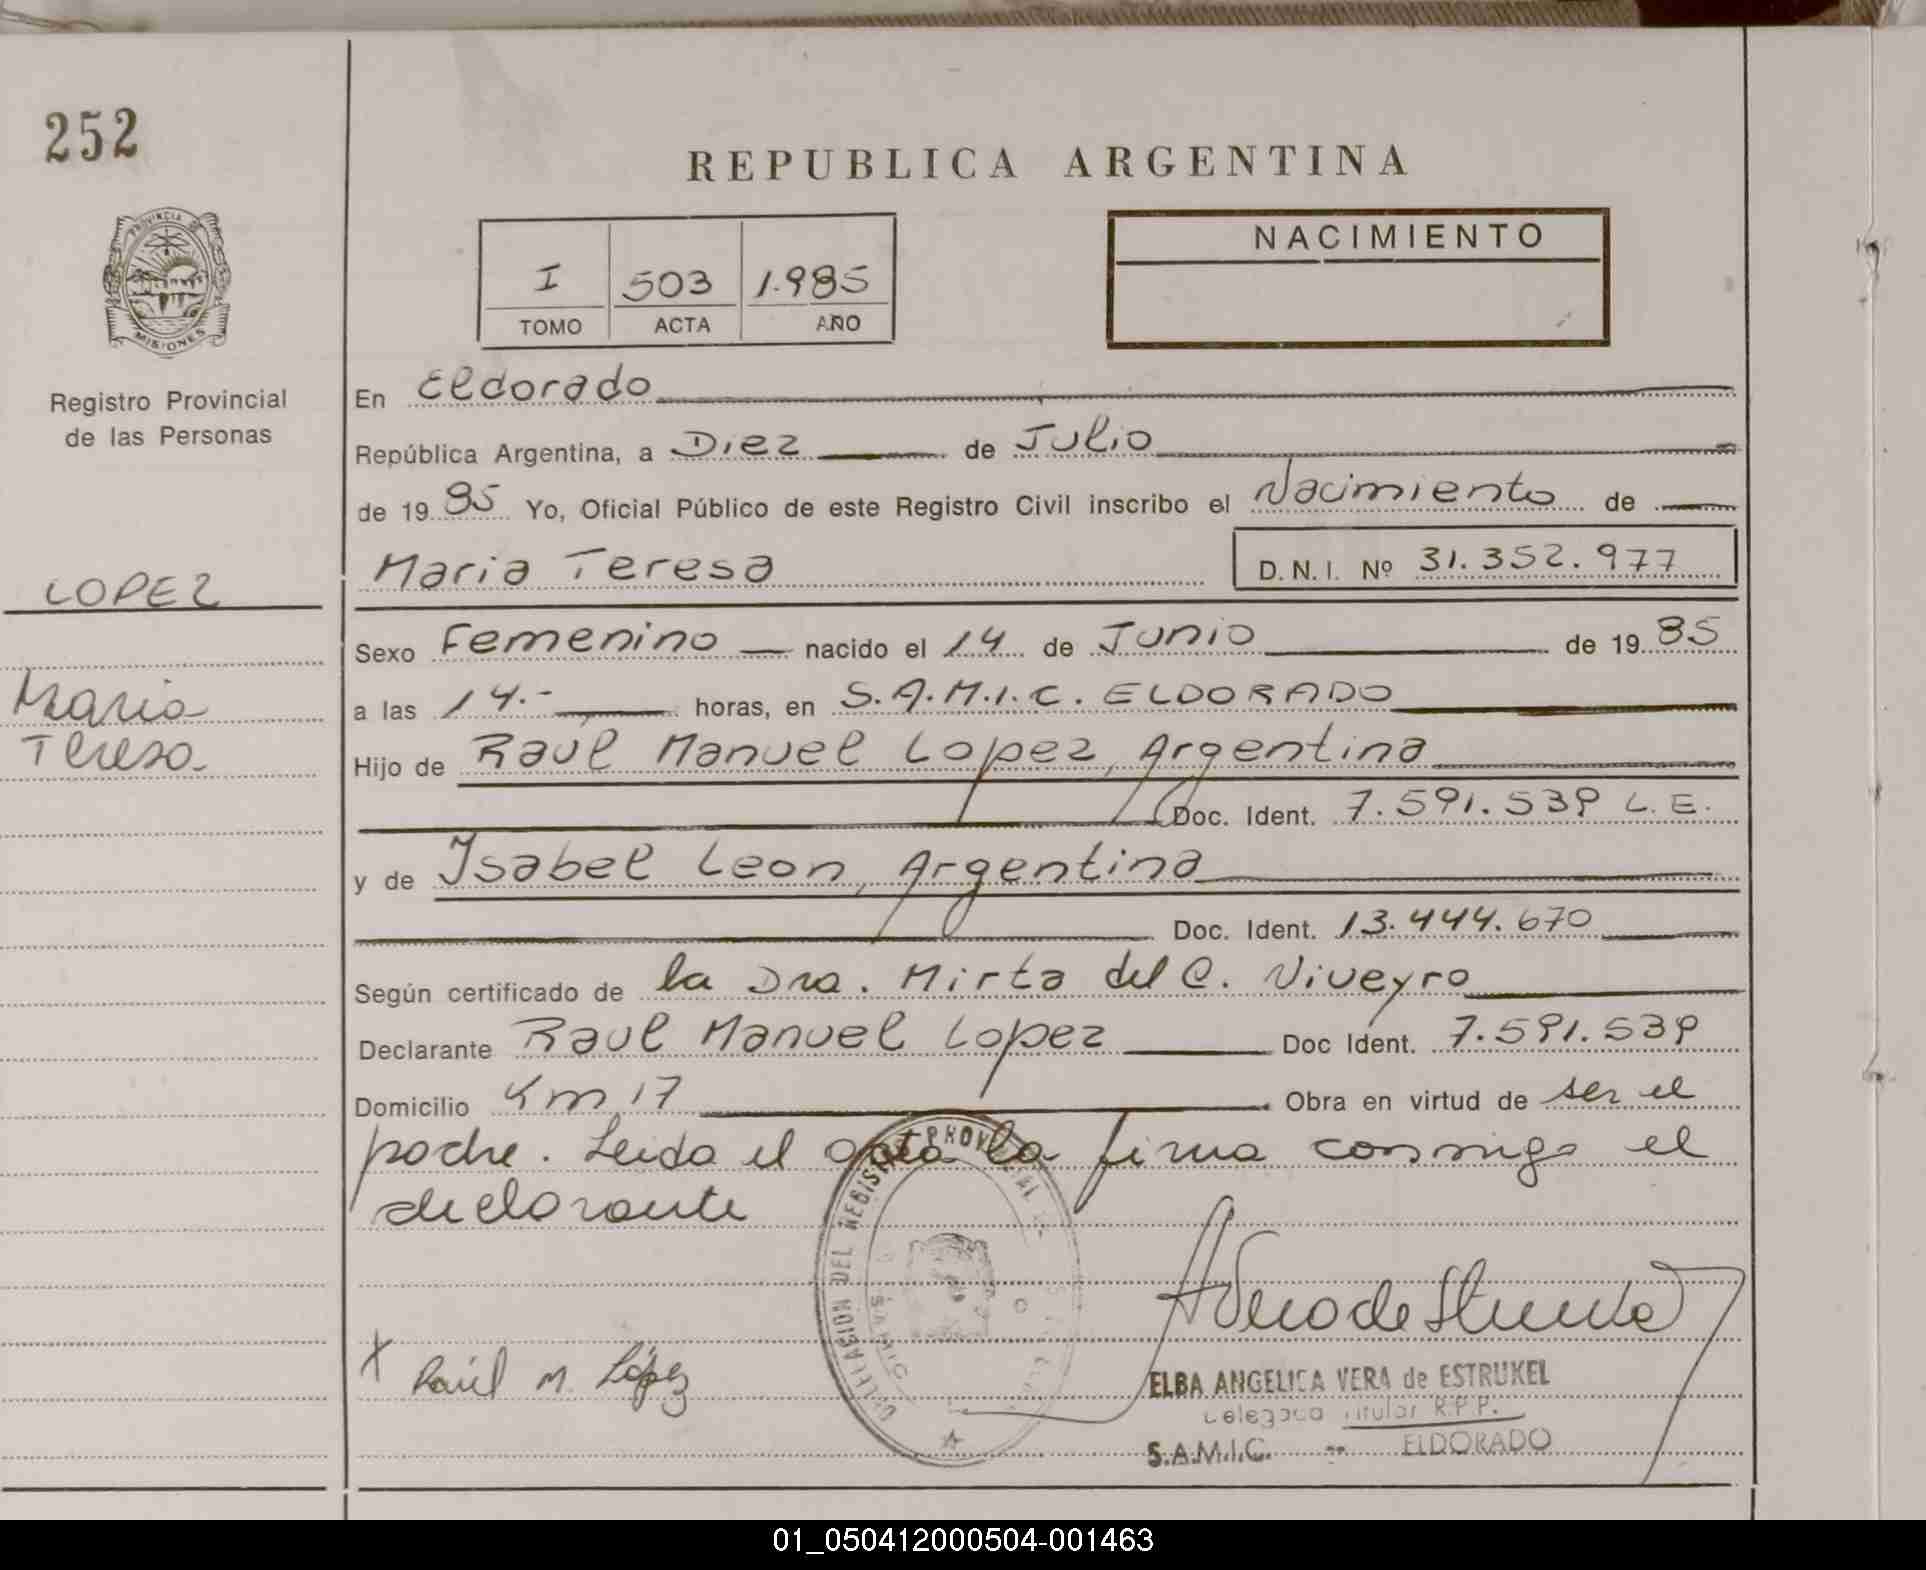 252
REPUBLICA ARGENTINA
PROVINCIA DE
MISIONES
Registro Provincial
de las Personas
I 503 1.985
TOMO ACTA AÑO
NACIMIENTO
En Eldorado
República Argentina, a Diez de Julio
de 1985 Yo, Oficial Público de este Registro Civil inscribo el Nacimiento de
Maria Teresa D.N.I. Nº 31.352.977
LOPEZ
Maria
Teresa
Sexo Femenino nacido el 14 de Junio de 1985
a las 14.- horas, en S.A.M.I.C. ELDORADO
Hijo de Raúl Manuel Lopez, Argentina
Doc. Ident. 7.591.539 L.E.
y de Isabel Leon, Argentina
Doc. Ident. 13.444.670
Según certificado de la Dra. Mirta del C. Viveyro
Declarante Raul Manuel Lopez Doc Ident. 7.591.539
Domicilio Km 17 Obra en virtud de ser el
padre. Leida el acta la firma conmigo el
declarante
DELEGACION DEL REGISTRO PROVINCIAL
Raúl M. López
ELBA ANGELICA VERA de ESTRUKEL
Delegada Titular R.P.P.
S.A.M.I.C. -- ELDORADO
01_050412000504-001463